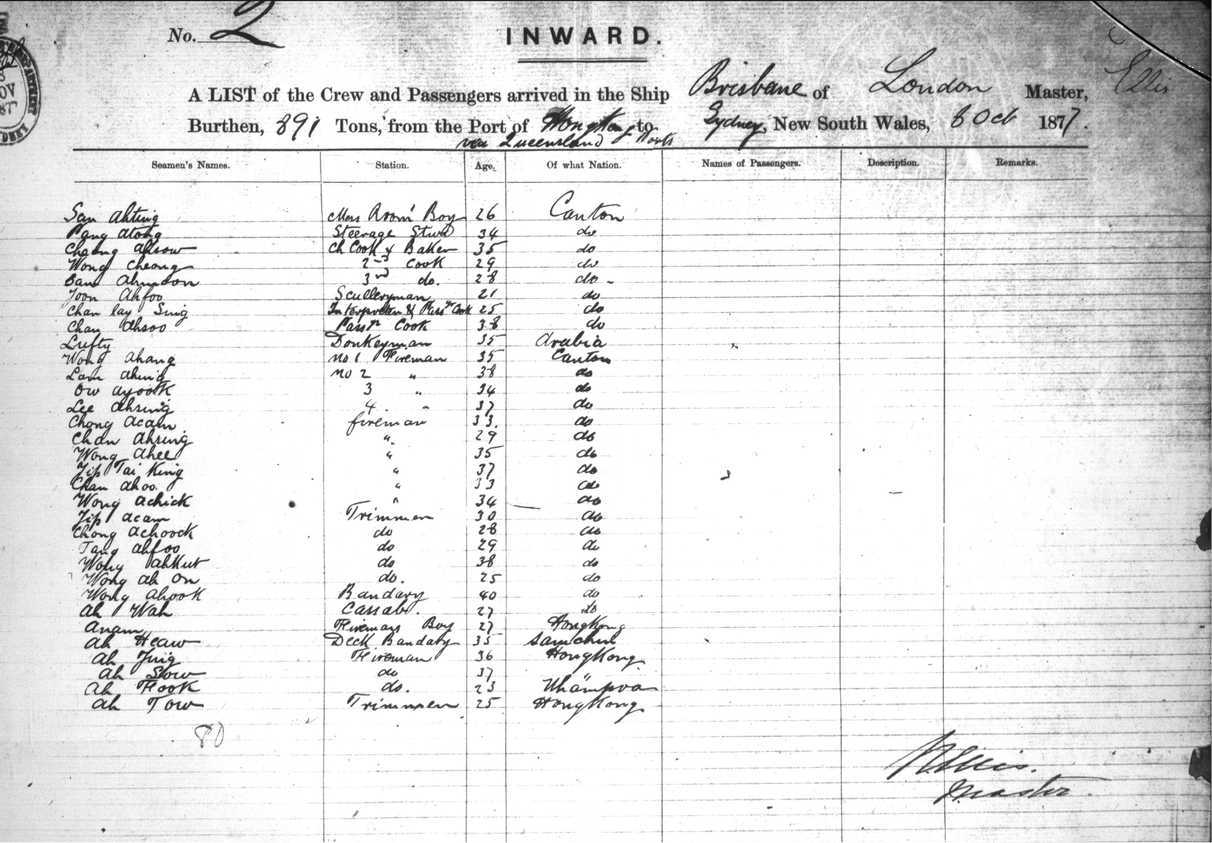 No. 2
INWARD.
A LIST of the Crew and Passengers arrived in the Ship Brisbane of London Master, Ellis
Burthen, 891 Tons, from the Port of Hong Kong to Sydney, New South Wales, 6 Oct 1877.
via Queensland Ports
Seamen's Names. Station. Age. Of what Nation. Names of Passengers. Description. Remarks.
San Ahting Mess Room Boy 26 Canton
Pang Atong Steerage Stwd 34 do
Cheong Ahsow Ch Cook & Baker 35 do
Wong Cheong 2nd Cook 29 do
3rd do. 28 do
Ahfoo Sculleryman 21 do
Chan lay Sing Interpreter & Passr Cook 25 do
Chan Ahsoo Passr Cook 38 do
Lufty Donkeyman 35 Arabia
Wong Ahang No 1 Fireman 35 Canton
Lam Ahing No 2 " 38 do
Ow Ayook 3 " 34 do
Lee Ahsing 4 " 37 do
Chong Acam fireman 33. do
Chan Ahsing " 29 do
Wong Ahee " 35 do
Yip Tai King " 37 do
Chan Ahoo. " 33 do
Wong Achick " 34 do
Yip Acam Trimmer 30 do
Chong Achoock do 28 do
Tang Ahfoo do 29 do
Wong Ahkut do 38 do
Wong Ah On do. 25 do
Wong Ahook Bandary 40 do
Ah Wah Cassab. 27 do
Anam Firemans Boy 27 Hongkong
Ah Heaw Deck Bandary 35 Samchun
Ah Jung Fireman 36 HongKong
Ah Sow do 37
Ah Fook do. 23 Whampoa
Ah Tow Trimmer 25 HongKong
Ellis.
Master